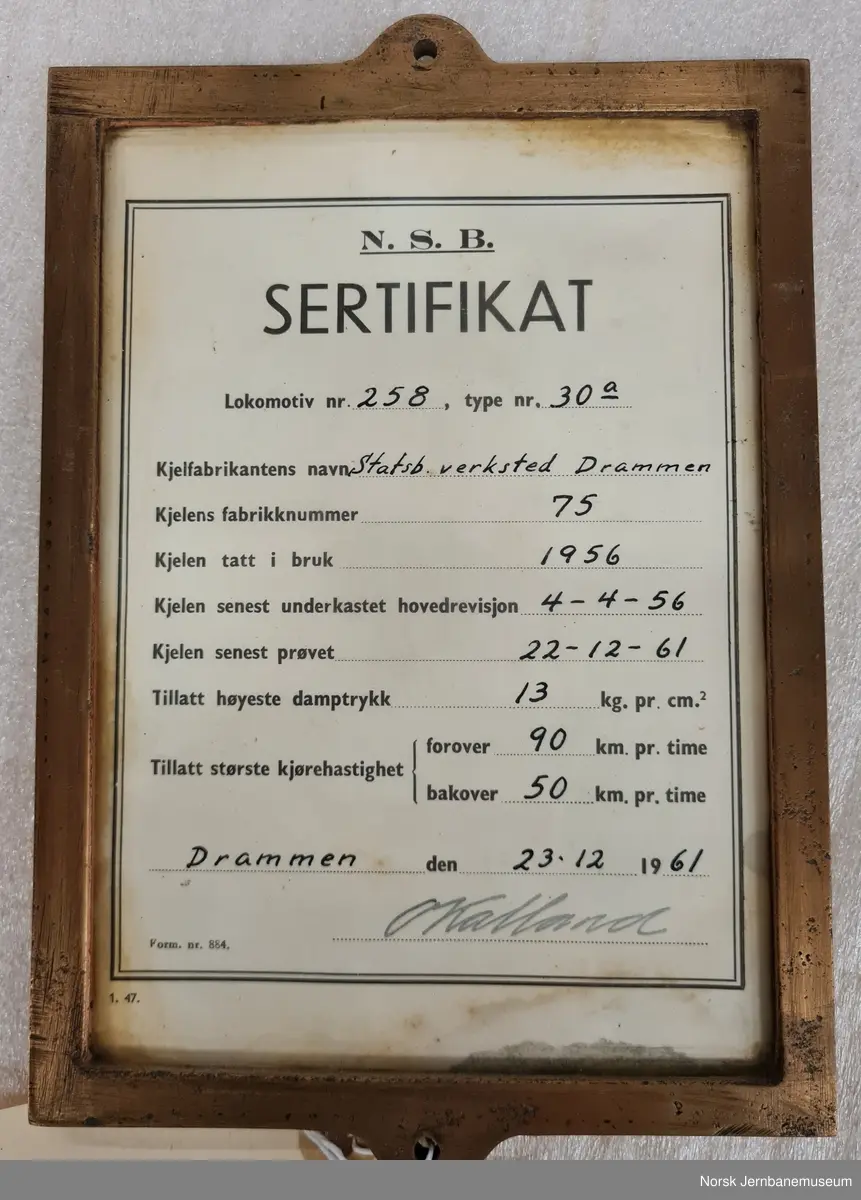 N. S. B.
SERTIFIKAT
Lokomotiv nr. 258, type nr. 30a
Kjelfabrikantens navn Statsb. verksted Drammen
Kjelens fabrikknummer 75
Kjelen tatt i bruk 1956
Kjelen senest underkastet hovedrevisjon 4-4-56
Kjelen senest prøvet 22-12-61
Tillatt høyeste damptrykk 13 kg. pr. cm.²
Tillatt største kjørehastighet
forover 90 km. pr. time
bakover 50 km. pr. time
Drammen den 23.12 1961
Form. nr. 884.
1. 47.
Norsk Jernbanemuseum